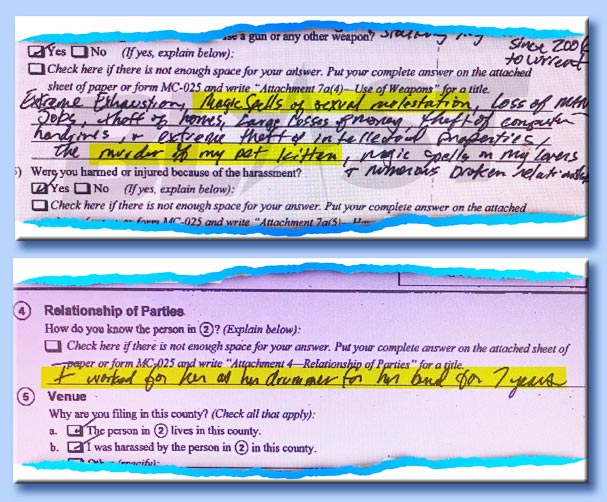 use a gun or any other weapon?
since 200
☑ Yes ☐ No (If yes, explain below):
to current
☐ Check here if there is not enough space for your answer. Put your complete answer on the attached
sheet of paper or form MC-025 and write "Attachment 7a(4)—Use of Weapons" for a title.
Extreme Exhaustion, Magic Spells of sexual molestation, Loss of
Jobs, theft of homes, Large losses of money, theft of computer
hardrives, & extreme theft of intellectual properties,
the murder of my pet kitten, magic spells on my lovers
Were you harmed or injured because of the harassment?
+ numerous broken relationship
☑ Yes ☐ No (If yes, explain below):
☐ Check here if there is not enough space for your answer. Put your complete answer on the attached
sheet of paper or form MC-025 and write "Attachment 7a(5)—
4 Relationship of Parties
How do you know the person in 2? (Explain below):
☐ Check here if there is not enough space for your answer. Put your complete answer on the attached sheet of
paper or form MC-025 and write "Attachment 4—Relationship of Parties" for a title.
I worked for her as her drummer for her band for 7 years
5 Venue
Why are you filing in this county? (Check all that apply):
a. ☑ The person in 2 lives in this county.
b. ☑ I was harassed by the person in 2 in this county.
☐ Other (specify):